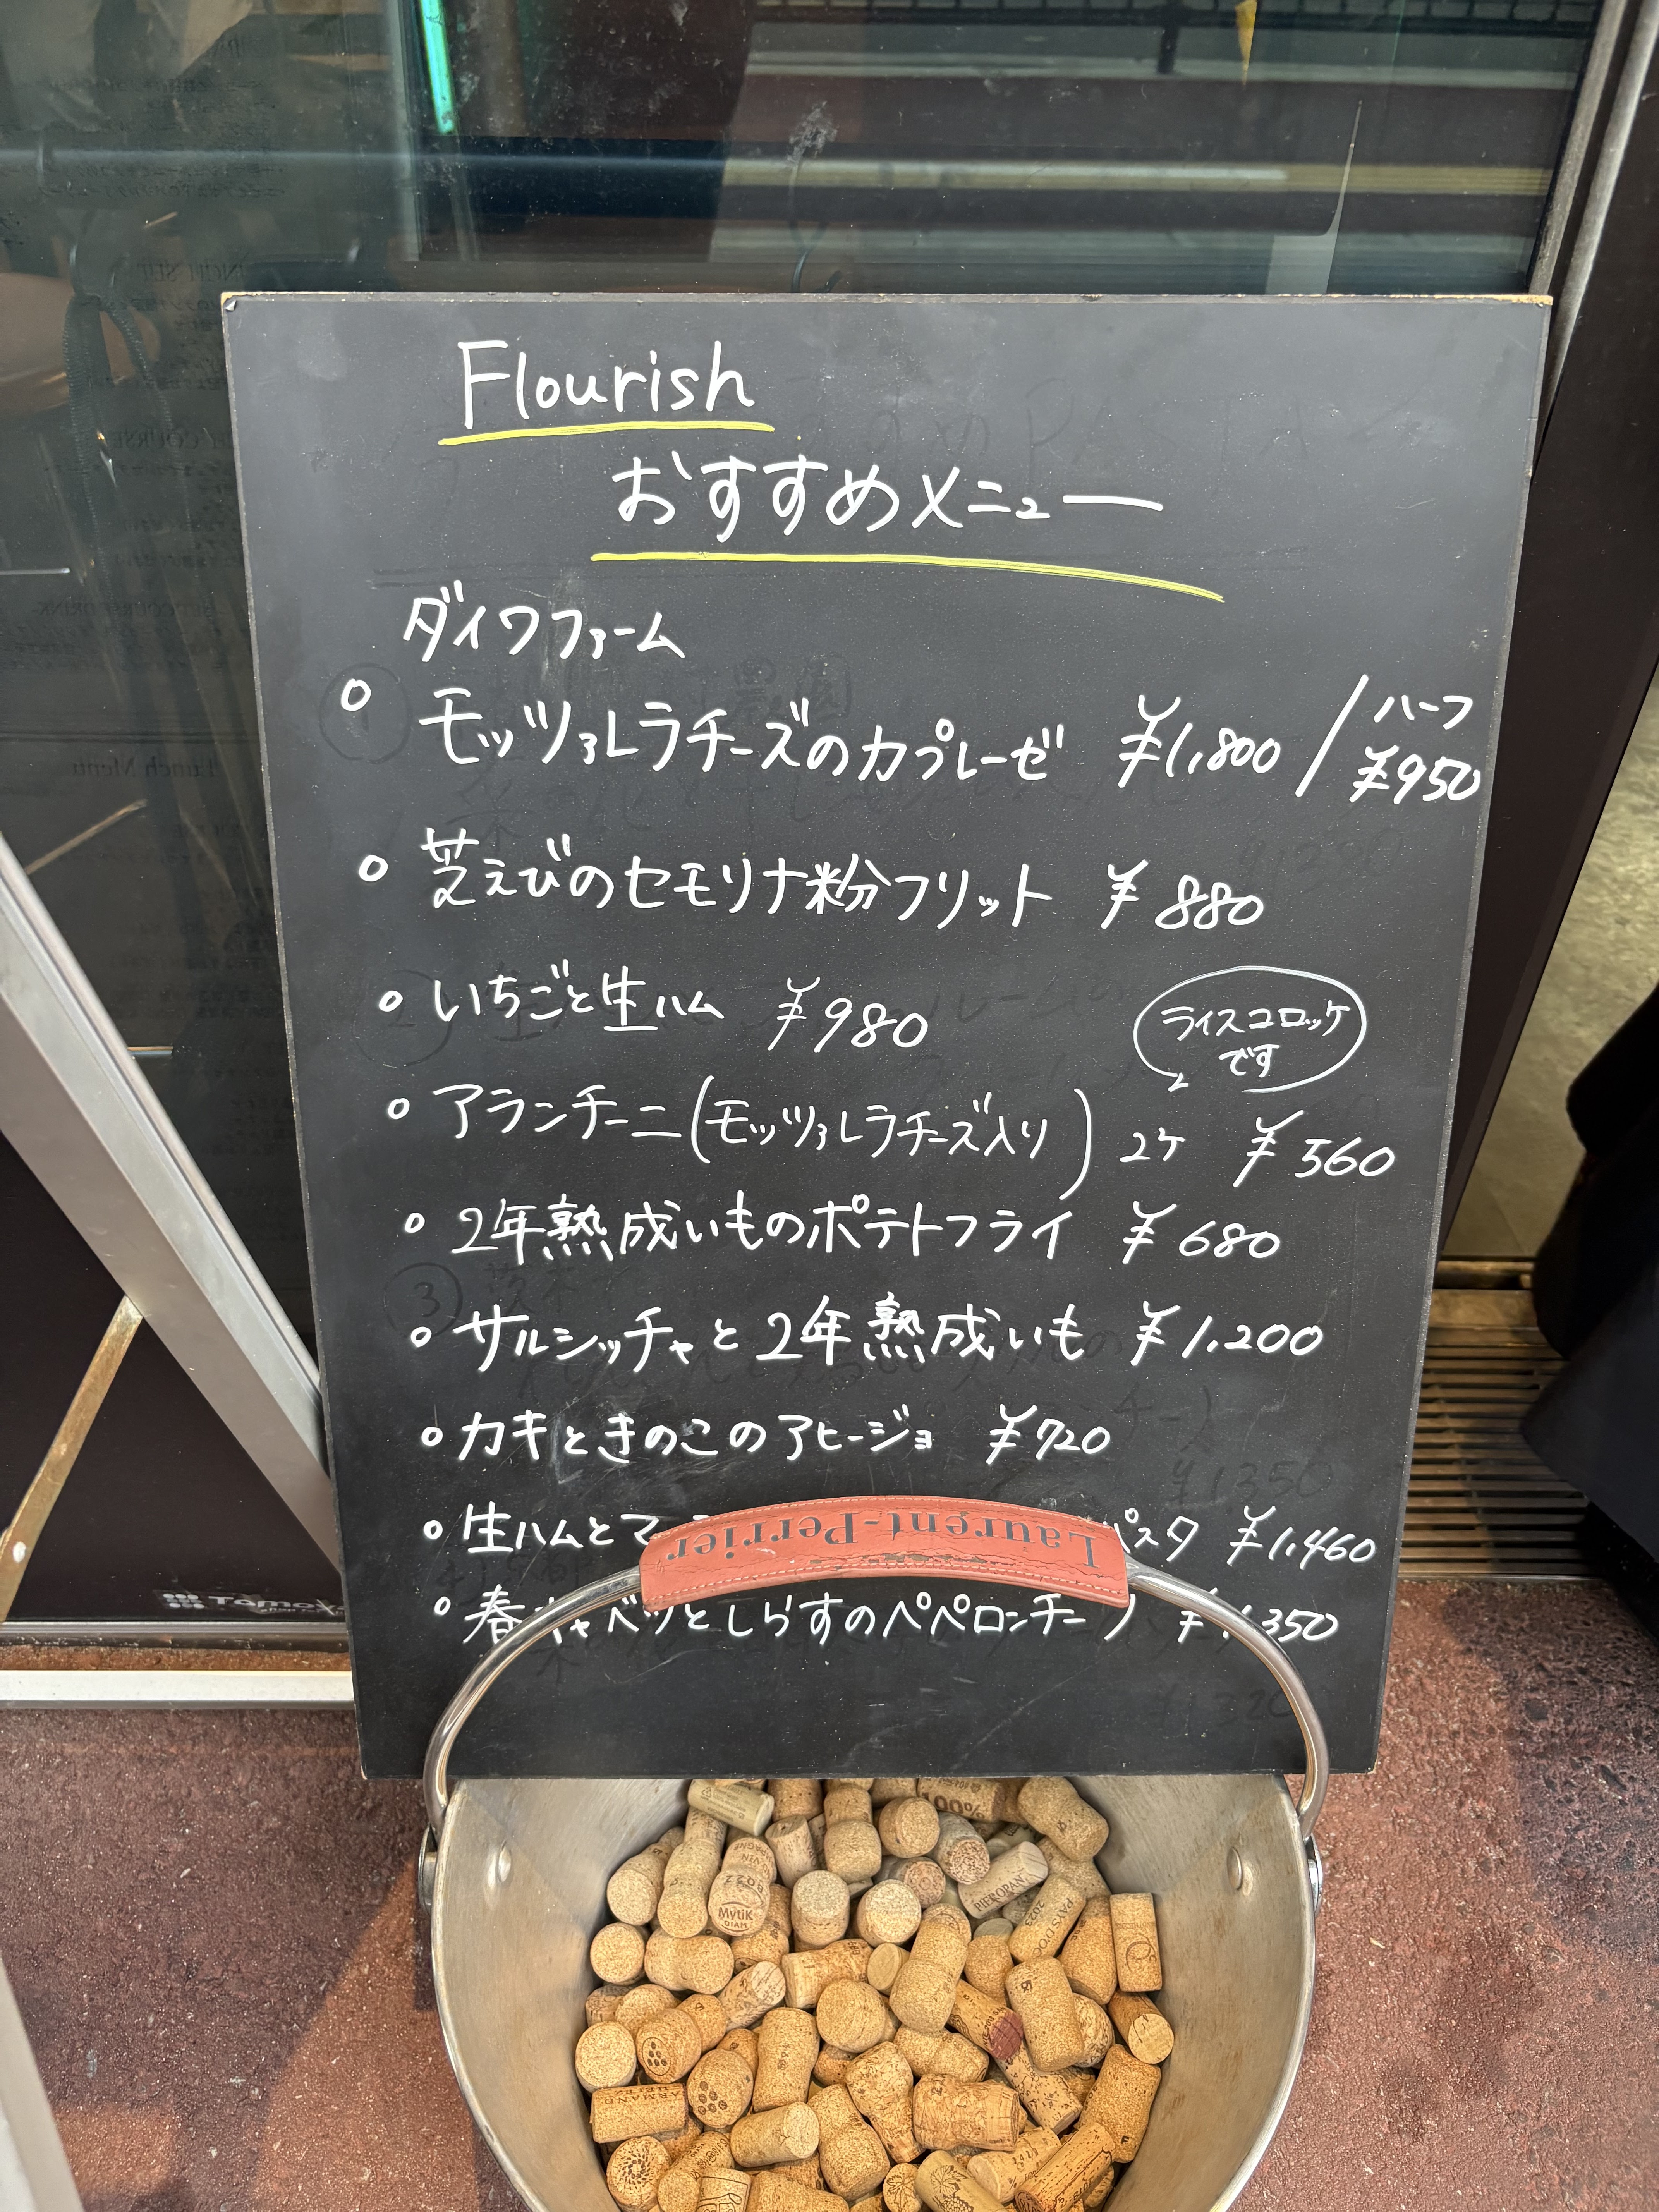 Flourish
おすすめメニュー
ダイワファーム
○ モッツァレラチーズのカプレーゼ ¥1,800 / ハーフ ¥950
○ 芝えびのセモリナ粉フリット ¥880
○ いちごと生ハム ¥980
ライスコロッケ
です
○ アランチーニ(モッツァレラチーズ入り) 2ケ ¥560
○ 2年熟成いものポテトフライ ¥680
○ サルシッチャと2年熟成いも ¥1,200
○ カキときのこのアヒージョ ¥720
○ 生ハムとマッ パスタ ¥1,460
○ 春キャベツとしらすのペペロンチーノ ¥1,350
Laurent-Perrier
Lunch Menu
100%
PIEROPAN
Mytik
DIAM